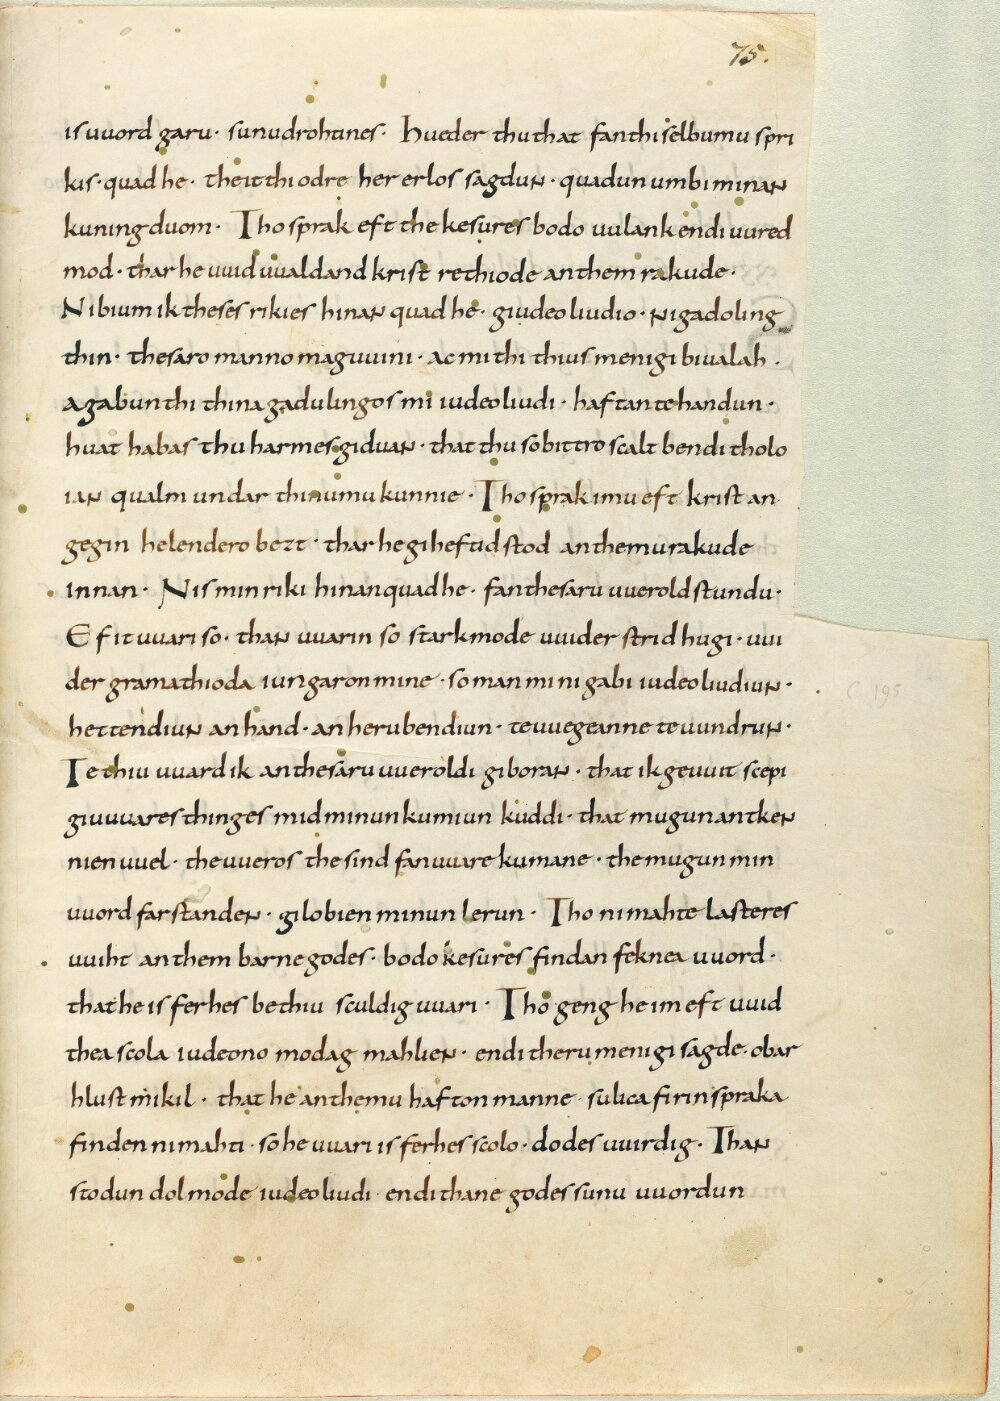 75.
is uuord garu· sunu drohtines· Hueder thu that fan thi selbumu spri
kis· quad he· the it thi odre her erlos sagdun· quadun umbi minan
kuningduom· Tho sprak eft the kesures bodo uulank endi uured
mod· thar he uuid uualdand krist rethiode an them rakude·
Ni bium ik theses rikies hinan quad he· giudeo liudio· ni gadoling
thin· thesaro manno maguuini· ac mi thi thius menigi bivalah·
agabun thi thina gadulingos mi iudeo liudi· haftan te handun·
huat habas thu harmes giduan· that thu so bittro scalt bendi tholo
ian qualm undar thinumu kunnie· Tho sprak imu eft krist an
gegin helendero bezt· thar he giheftid stod an themu rakude
innan· Nis min riki hinan quad he· fan thesaru uueroldstundu·
Ef it uuari so· than uuarin so starkmode uuider stridhugi· uui
der gramathioda iungaron mine· so man mi ni gabi iudeo liudiun·
hettendiun an hand· an herubendiun· te uuegeanne te uundrun·
Te thiu uuard ik an thesaru uueroldi giboran· that ik geuuit scepi
giu uuares thinges mid minun kumiun kuddi· that mugun antken
nien uuel· the uueros the sind fan uuare kumane· the mugun min
uuord farstanden· gilobien minun lerun· Tho ni mahte lasteres
uuiht an them barne godes· bodo kesures findan feknea uuord·
that he is ferhes be thiu sculdig uuari· Tho geng he im eft uuid
thea scola iudeono modag mahlien· endi theru menigi sagde· obar
hlust mikil· that he an themu hafton manne sulica firinspraka
finden ni mahti· so he uuari is ferhes scolo· dodes uuirdig· Than
stodun dolmode iudeo liudi endi thane godes sunu uuordun
C 195